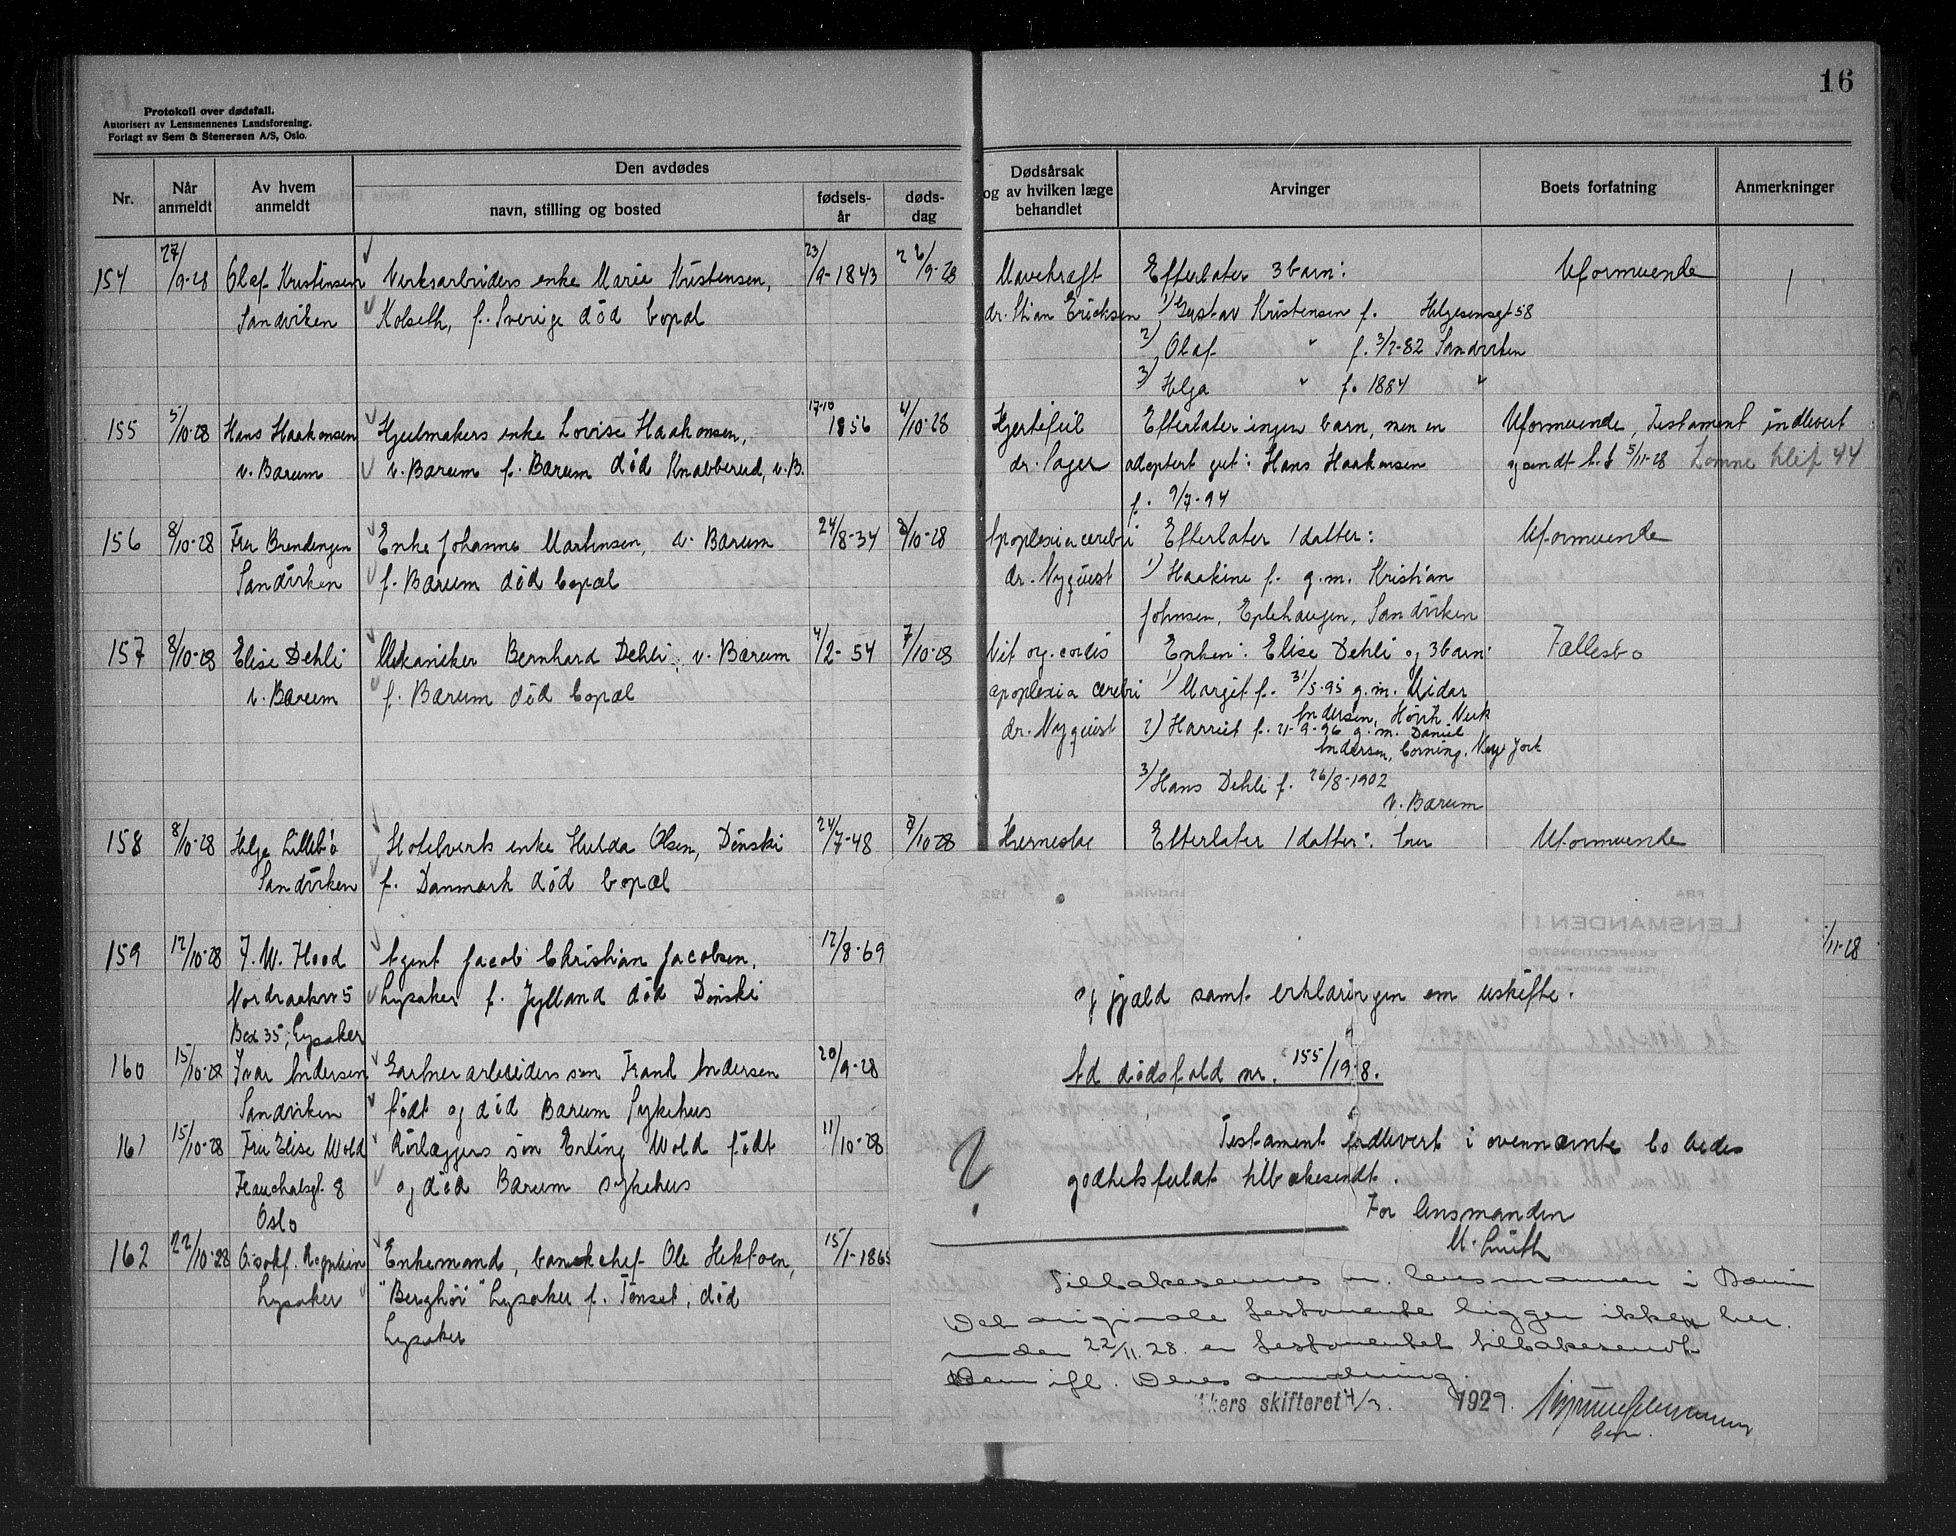 16
Protokoll over dødsfall.
Autorisert av Lensmennenes Landsforening.
Forlagt av Sem & Stenersen A/S, Oslo.
Nr.
Når anmeldt
Av hvem anmeldt
Den avdødes
navn, stilling og bosted
fødselsår
dødsdag
Dødsårsak
og av hvilken læge
behandlet
Arvinger
Boets forfatning
Anmerkninger
154 27/9-28 Olaf Kristensen Verksarbeiders enke Marie Kristensen, 23/9-1843 26/9-28 Mavekræft Efterlater 3 barn: Uformuende
Sandviken Kolseth, f. Sverige död bopæl dr. Stian Ericksen 1) Gustav Kristensen f. Helgesensgt 58
2) Olaf " f. 3/7-82 Sandviken
3) Helga " f. 1884 "
155 5/10-28 Hans Haakonsen Hjulmakers enke Lovise Haakonsen, 17-10 1856 4/10-28 Hjertefeil Efterlater ingen barn, men en Uformuende, Testament indlevert
v. Bærum v. Bærum f. Bærum död Knabberud, v. B. dr. Sager adoptert gut: Hans Haakonsen og sendt 5/11-28
f. 9/7-94
156 8/10-28 Fru Brendengen Enke Johanne Martinsen, v. Bærum 24/8-34 8/10-28 Apoplexia cerebri Efterlater 1 datter: Uformuende
Sandviken f. Bærum död bopæl dr. Nyquist 1) Haakine f. g.m. Kristian
Johnsen, Eplehaugen, Sandviken
157 8/10-28 Elise Dehli Mekaniker Bernhard Dehli, v. Bærum 4/2-54 7/10-28 Vit. org. cordis Enken: Elise Dehli og 3 barn: Fællesbo
v. Bærum f. Bærum död bopæl apoplexia cerebri 1) Margit f. 31/5-95 g.m. Vidar
Andersen, Hövik Verk
dr. Nyquist 2) Harriet f. 21-9-96 g.m. Daniel
Andersen, Corning, New York
3) Hans Dehli f. 26/8-1902
v. Bærum
158 8/10-28 Helga Lillebö Hotelverts enke Hulda Olsen, Dönski 24/7-48 8/10-28 Hjerneslag Efterlater 1 datter: Uformuende
Sandviken f. Danmark död bopæl
159 12/10-28 F. W. Hood Agent Jacob Christian Jacobsen, 12/8-69 /11-28
Nordraakvn 5 Lysaker f. Jylland död Dönski
Box 35, Lysaker
160 15/10-28 Ivar Andersen Gartnerarbeiders sön Frank Andersen 20/9-28
Sandviken födt og död Bærum Sykehus
161 15/10-28 Fru Elise Wold Rörlæggers sön Erling Wold födt 11/10-28
Frauchalsgt. 8 og död Bærum sykehus
Oslo
162 22/10-28 Enkemand, banekchef Ole Hektoen, 15/1-1865
Lysaker "Berghöi" Lysaker f. Tönset, död
Lysaker
og gjæld samt erklæringen om uskifte.
Ad dödsfald nr. 155/19-8.
Testament indlevert i ovennævnte bo bedes
godhetsfuldt tilbakesendt.
For lensmanden
M. Smith
Tilbakesendes m. lensmannen i Bærum
Det originale testamente ligger ikke her.
under 22/11.28. er testamentet tilbakesendt
Dem ifl. Deres anmodning.
Akers skifterett 4/3. 1929.
LENSMANDEN I
FRA